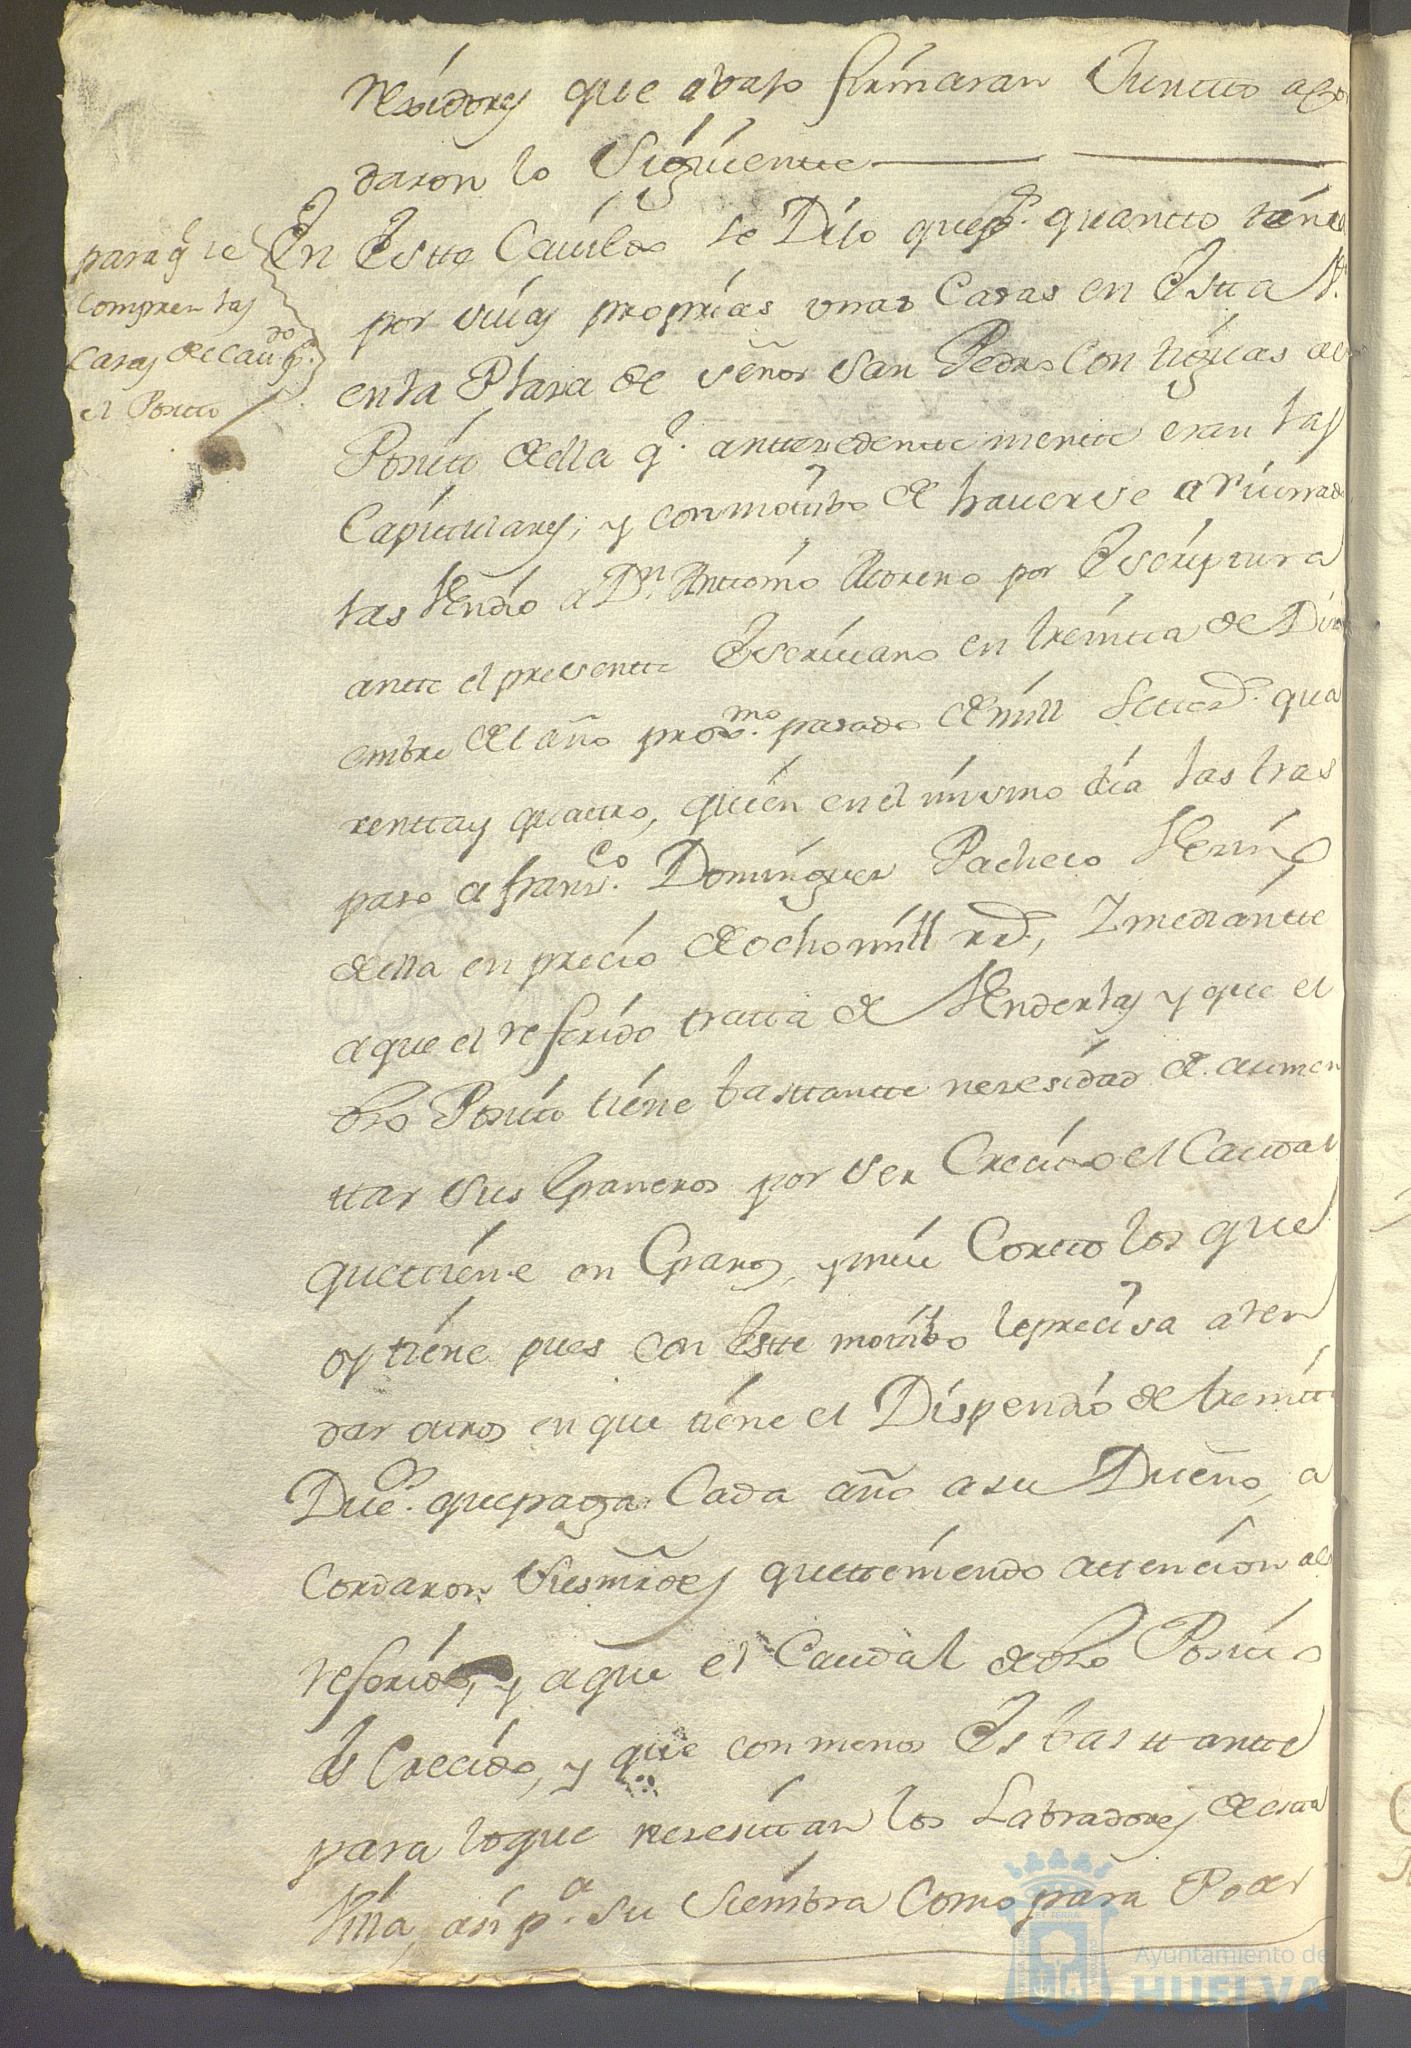 rexidores que avajo firmaran Juntto acor
daron lo siguiente
para q̃ se
compren las
casas de Cavdo pa.
el Positto
En Estte Cavildo se Dijo que pr. quantto tiene
por suias proprias unas Casas en Estta Va.
en la Plaza de señor San Pedro Contiguas al
Positto della q. anttezedentte mentte eran las
Capittulares, y con motivo de haverse arruinado
las Vendio a Dn. Anttonio Moreno por Escriptura
antte el presentte Escrivano en treintta de Dizi
embre del año proxmo. pasado de mill settecs. qua
rentta y quattro, quien en el mismo dia las tras
paso a franco. Dominguez Pacheco Vezino
della en precio de ocho mill rs., Y mediantte
a que el referido tratta de Venderlas y que el
dho Positto tiene basttantte nezesidad de aumen
ttar sus Graneros por ser Crecido el Caudal
que ttiene en Granos, y mui Cortto los que
oy tiene pues con Estte motivo le precisa arren
dar ottros en que tiene el Dispendio de treintta
Ducs. que paga Cada año a su Dueño, a
cordaron sus mrdes que tteniendo attencion alo
referido, y a que el Caudal de dho Positto
es Crecido, y que con menos Es basttantte
para lo que nezesittan los Labradores de estta
Villa, asi pa. su Siembra Como para Poder
Ayuntamiento de
HUELVA